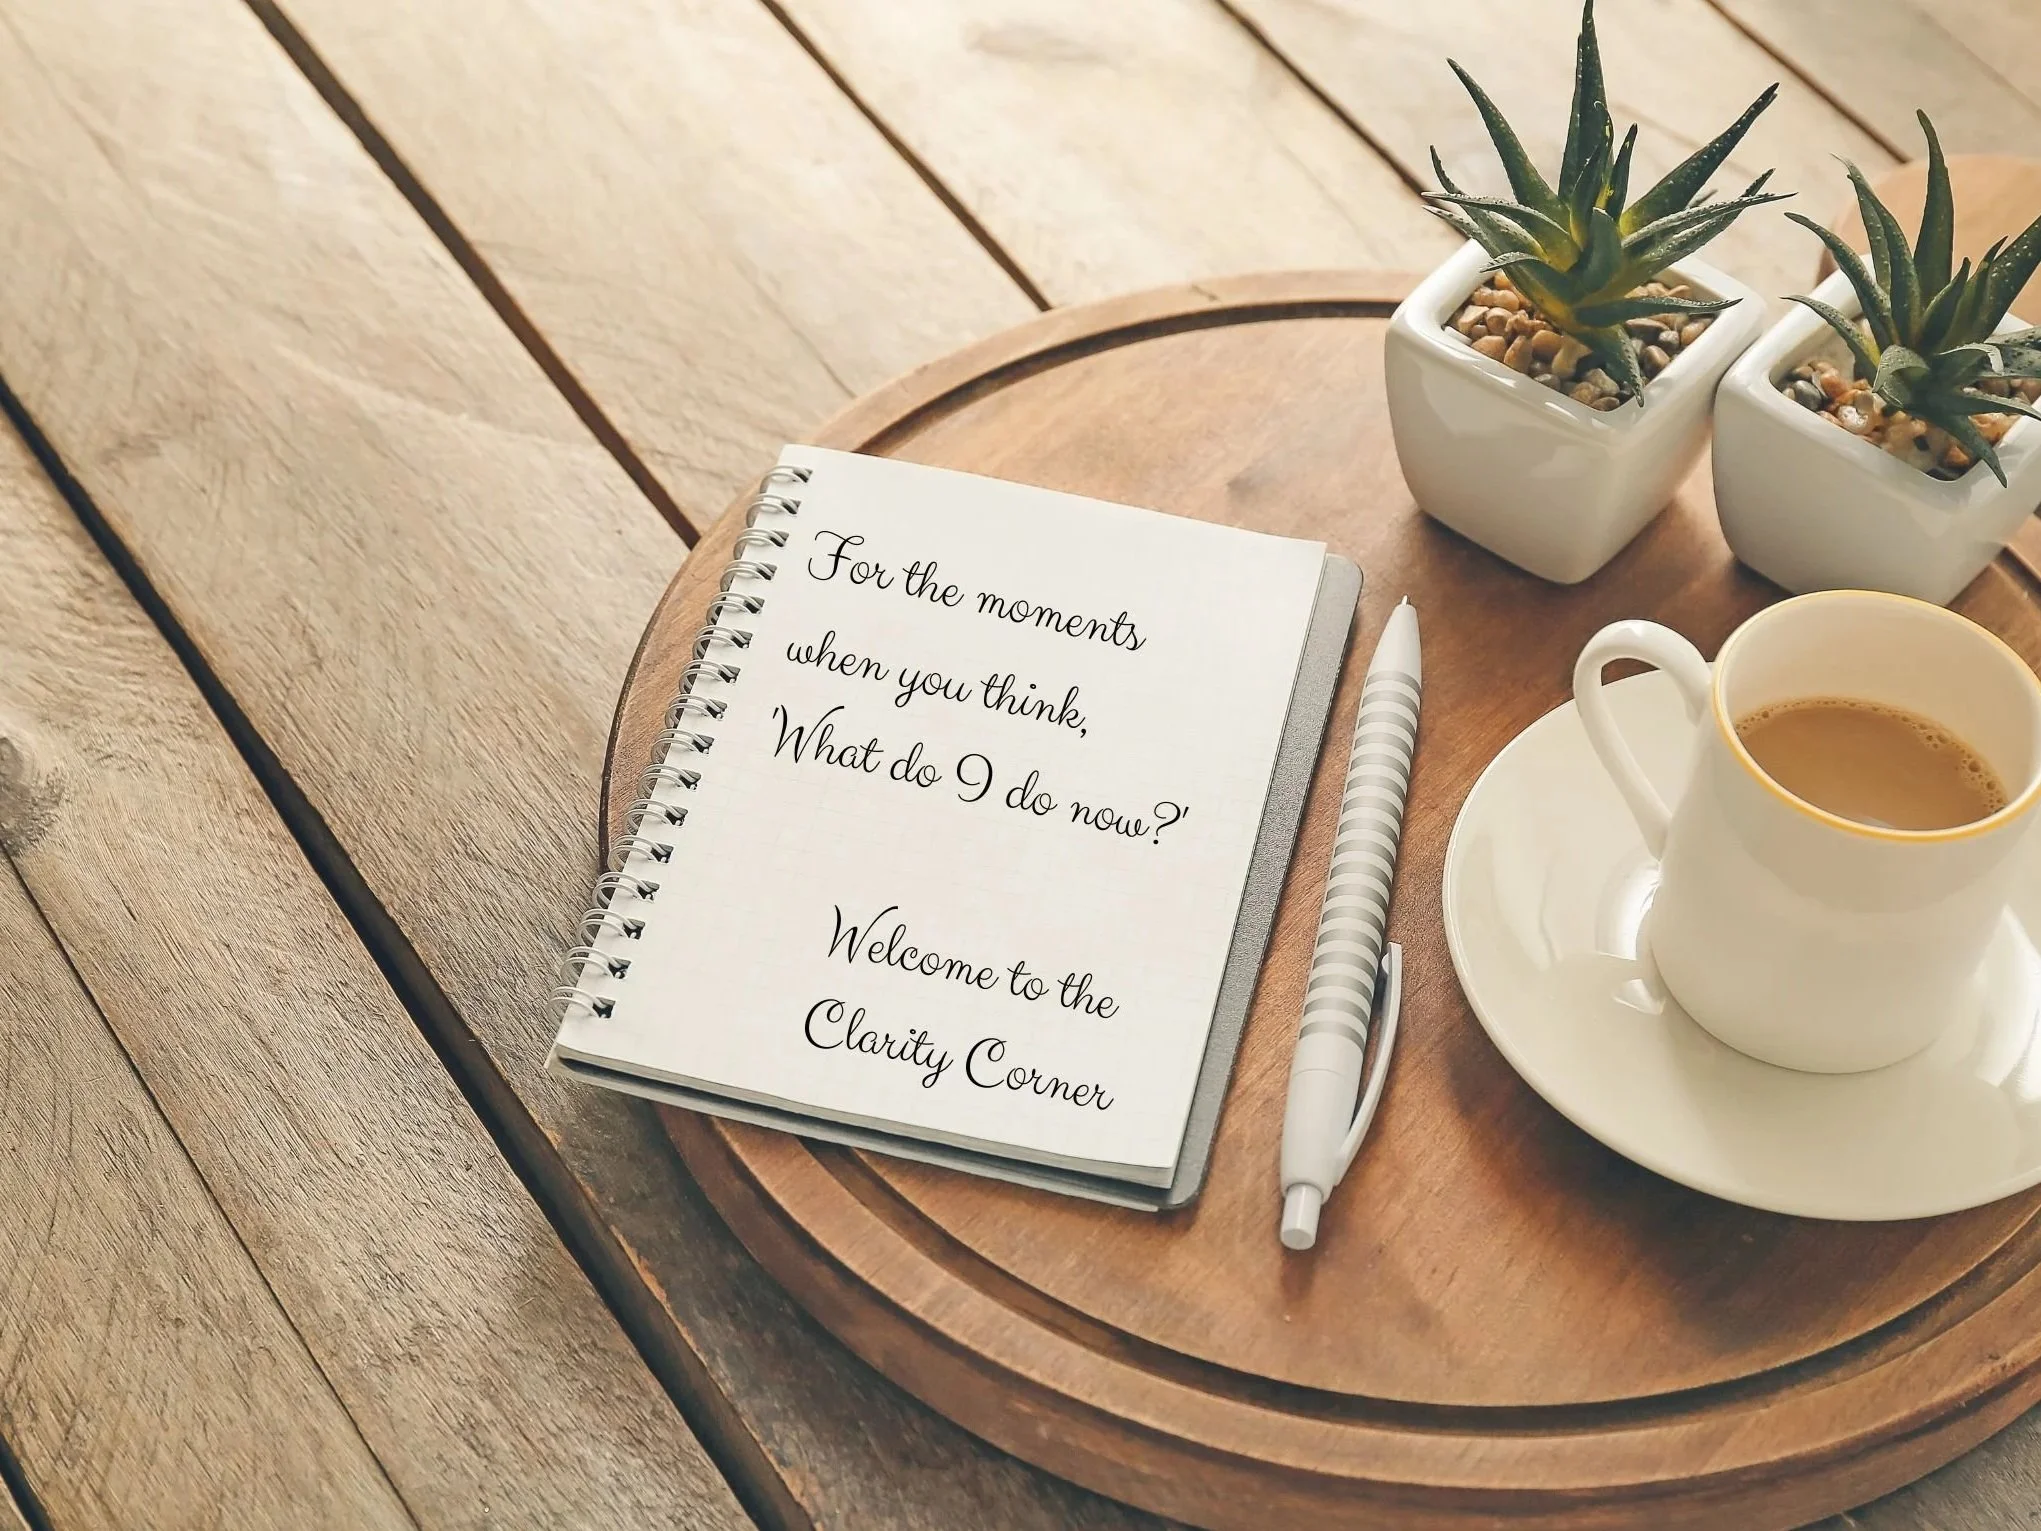 For the moments
when you think,
'What do I do now?'
Welcome to the
Clarity Corner